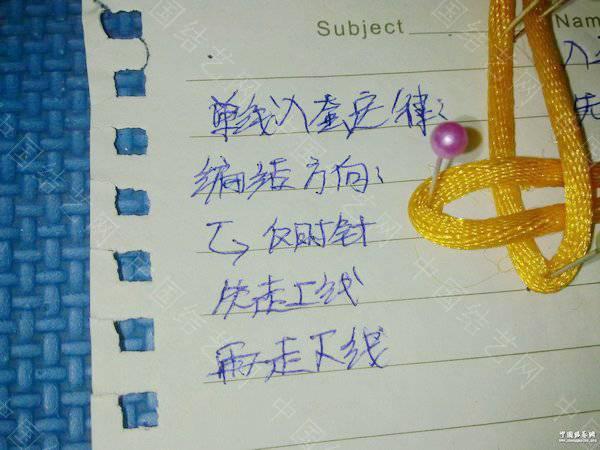 Subject
Nam
单线入套定律:
编结方向:
仅时针
先走上线
再走下线
入
先
中国结艺网